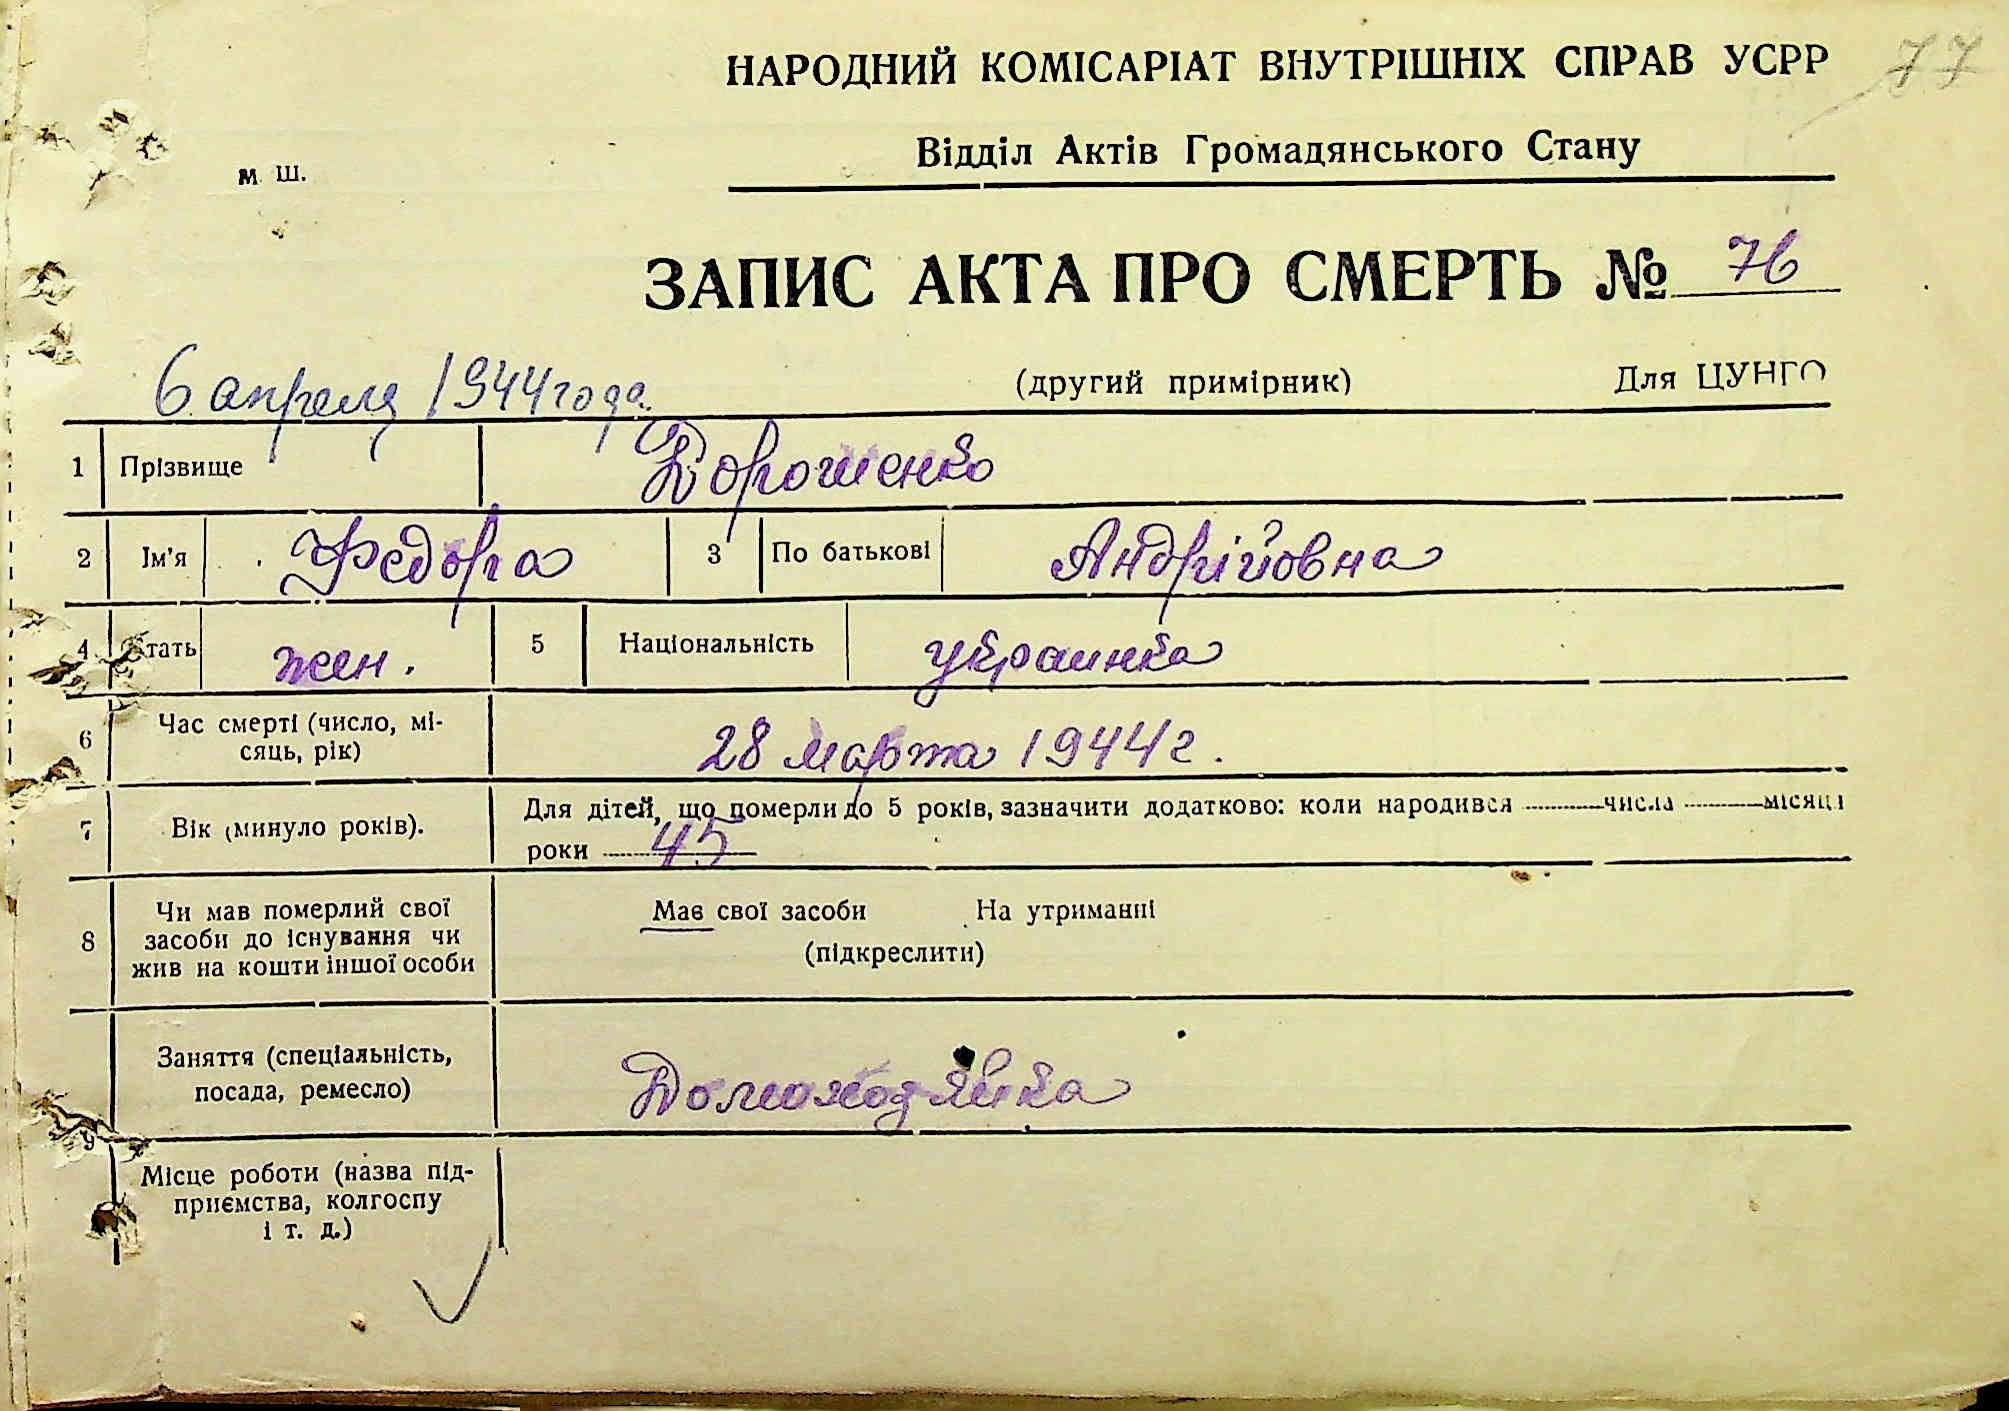 НАРОДНИЙ КОМІСАРІАТ ВНУТРІШНІХ СПРАВ УСРР 77
Відділ Актів Громадянського Стану
м. Ш.
ЗАПИС АКТА ПРО СМЕРТЬ № 76
6 апреля 1944 года.
(другий примірник) Для ЦУНГО
1 Прізвище Дорошенко
2 Ім'я Федора 3 По батькові Андрійовна
4 Стать жен. 5 Національність украинка
6 Час смерті (число, мі-
сяць, рік) 28 марта 1944 г.
7 Вік (минуло років). Для дітей, що померли до 5 років, зазначити додатково: коли народився числа місяця
роки 45
8 Чи мав померлий свої
засоби до існування чи
жив на кошти іншої особи
Має свої засоби На утриманні
(підкреслити)
9 Заняття (спеціальність,
посада, ремесло) Домохозяйка
Місце роботи (назва під-
приємства, колгоспу
і т. д.)